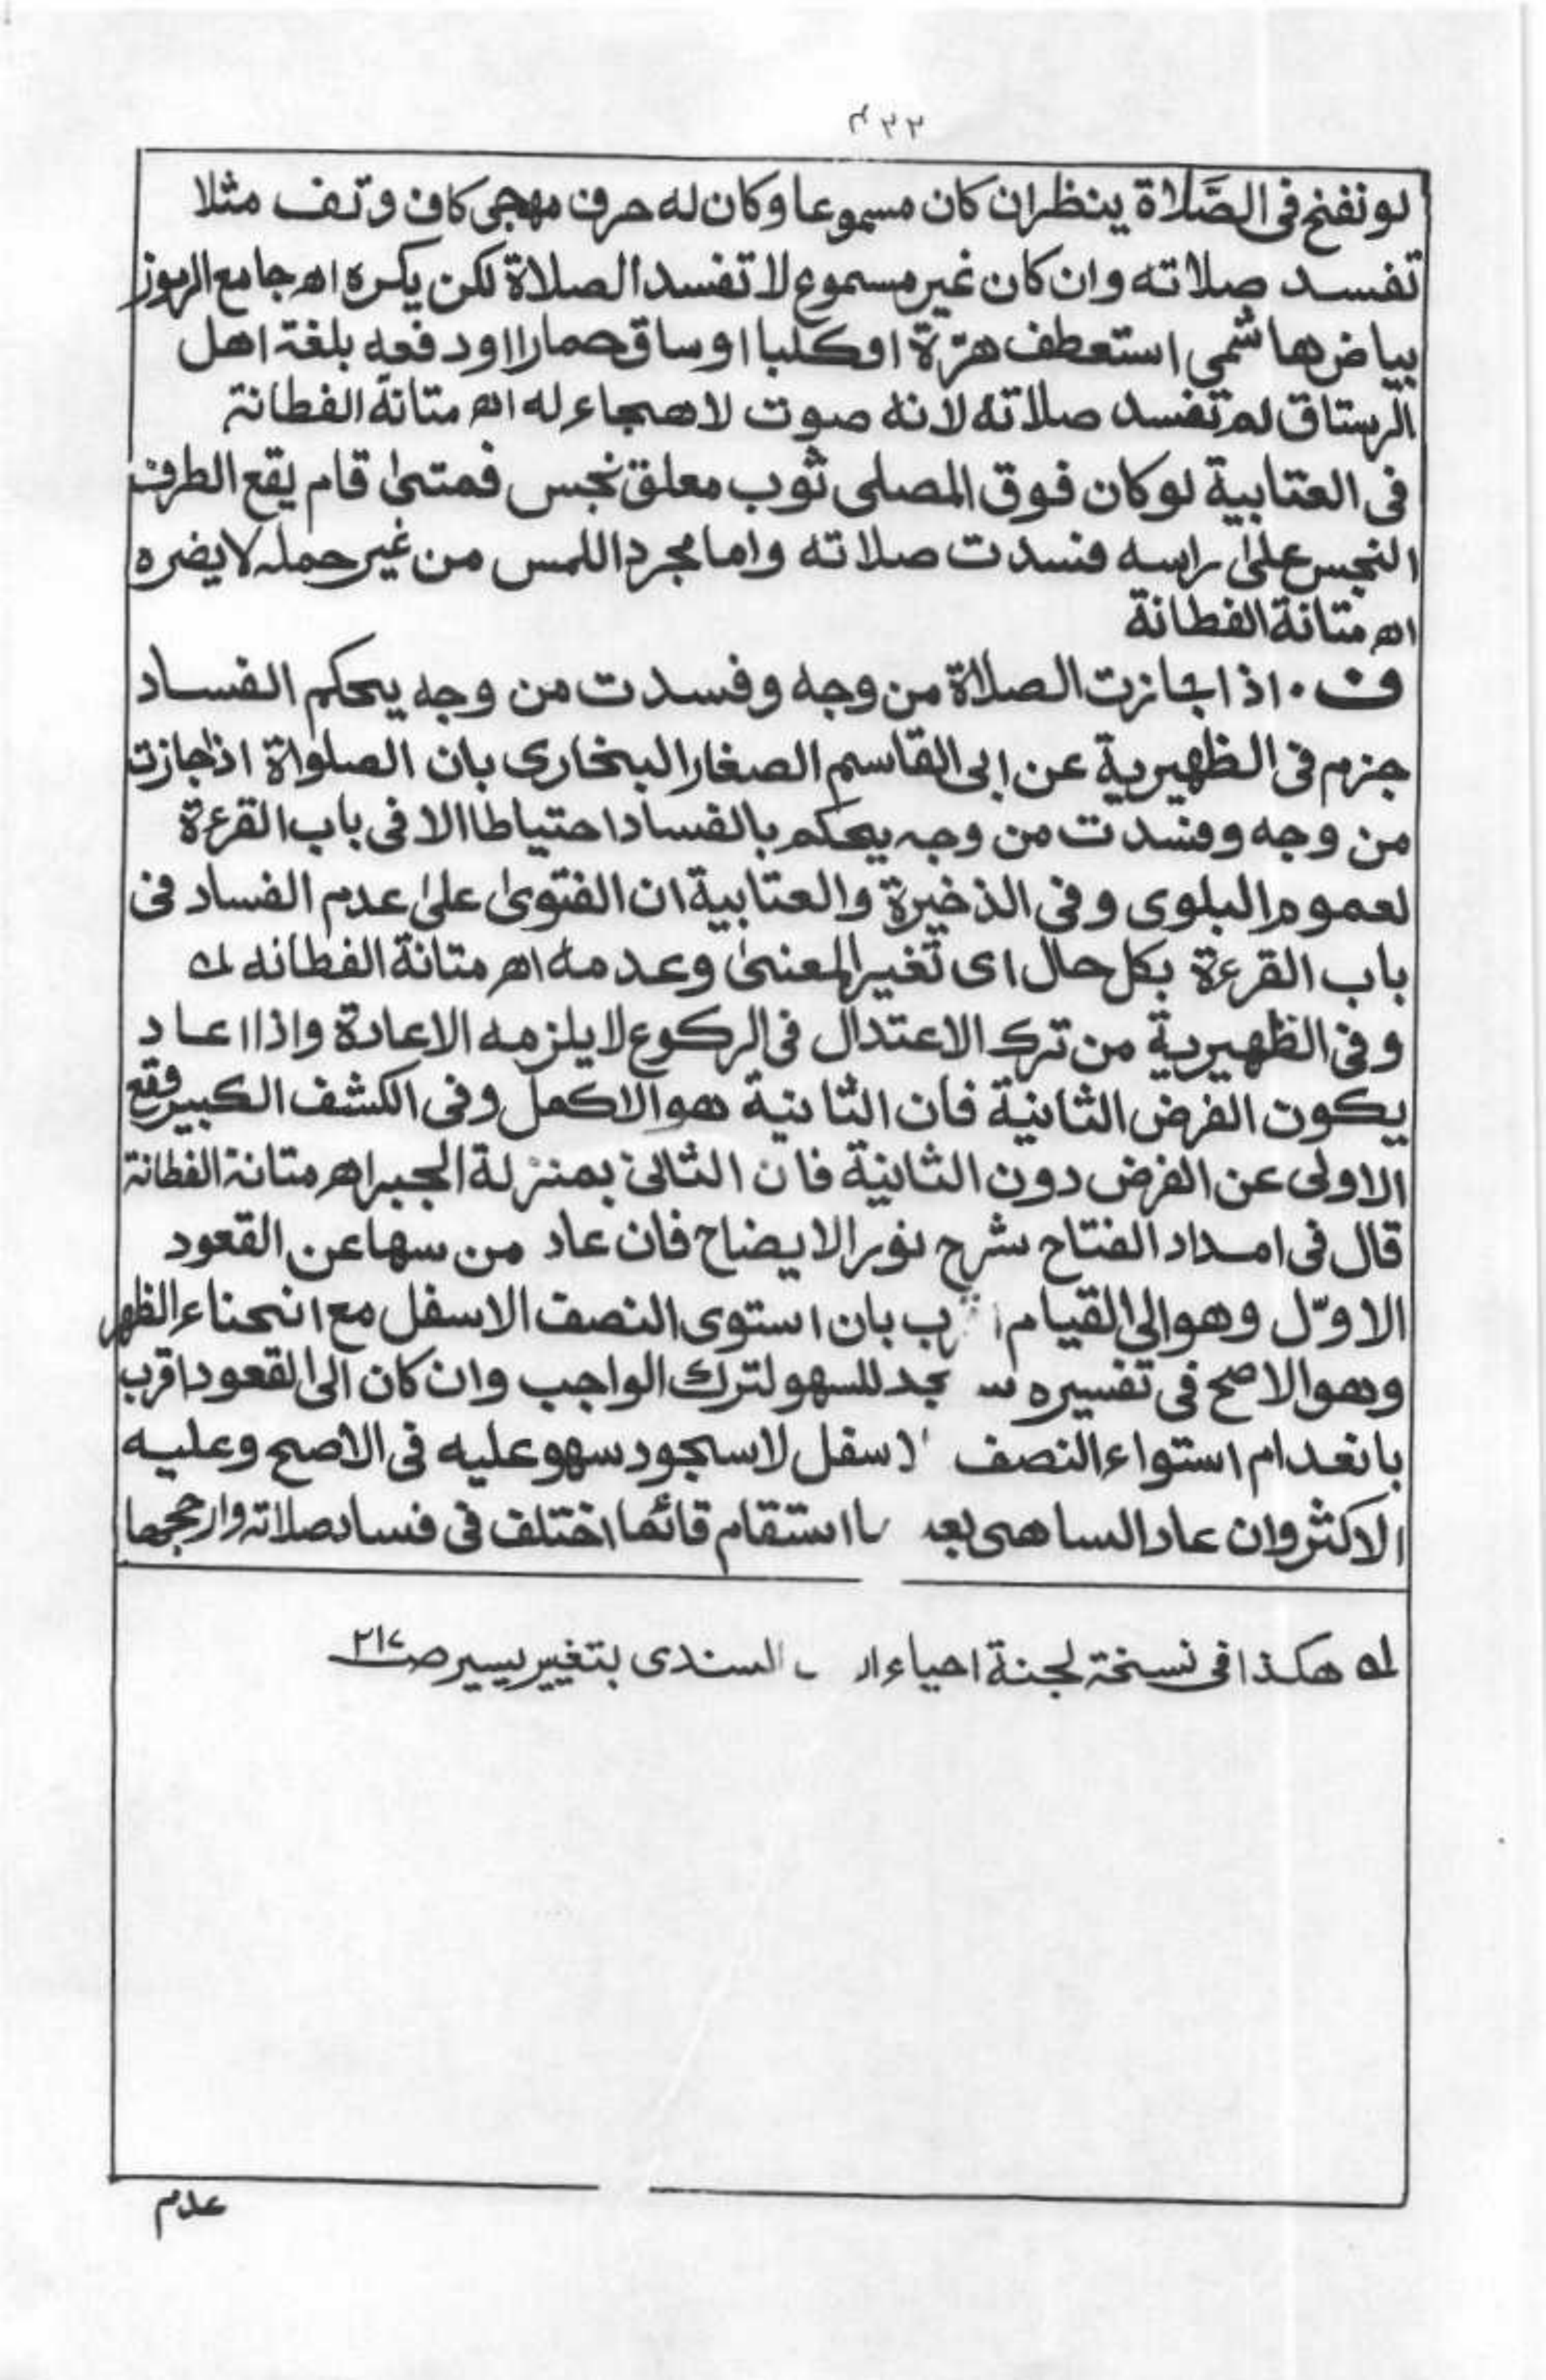 ٣٣٢
لو نفخ فی الصَّلاة ینظر ان کان مسموعا وکان له حرف مهجی کاف وتف مثلا
تفسد صلاته وان کان غیر مسموع لا تفسد الصلاة لکن یکره اه جامع الرموز
بیاض هاشمی استعطف هرّة او کلبا او ساق حمارا او دفعه بلغة اهل
الرستاق لم تفسد صلاته لانه صوت لا هجاء له اه متانة الفطانة
فی العتابیة لو کان فوق المصلی ثوب معلق نجس فمتی قام یقع الطرف
النجس علی راسه فسدت صلاته واما مجرد اللمس من غیر حمله لا یضره
اه متانة الفطانة
ف ۰ اذا جازت الصلاة من وجه وفسدت من وجه یحکم الفساد
جزم فی الظهیریة عن ابی القاسم الصغار البخاری بان الصلواة اذا جازت
من وجه وفسدت من وجه یحکم بالفساد احتیاطا الا فی باب القرءة
لعموم البلوی وفی الذخیرة والعتابیة ان الفتوی علی عدم الفساد فی
باب القرءة بکل حال ای تغیر المعنی وعدمه اه متانة الفطانه له
وفی الظهیریة من ترک الاعتدال فی الرکوع لا یلزمه الاعادة واذا اعاد
یکون الفرض الثانیة فان الثانیة هو الاکمل وفی الکشف الکبیر وقع
الاولی عن الفرض دون الثانیة فان الثانی بمنزلة الجبر اه متانة الفطانة
قال فی امداد الفتاح شرح نور الایضاح فان عاد من سها عن القعود
الاوّل وهو الی القیام رب بان استوی النصف الاسفل مع انحناء الظهر
وهو الاصح فی تفسیره س جد للسهو لترک الواجب وان کان الی القعود اقرب
بانعدام استواء النصف اسفل لا سجود سهو علیه فی الاصح وعلیه
الاکثر وان عاد الساهی بعد ما استقام قائما اختلف فی فساد صلاته وارجحهما
له هکذا فی نسخة لجنة احیاء السندی بتغییر یسیر صـ ٢١٧
عدم